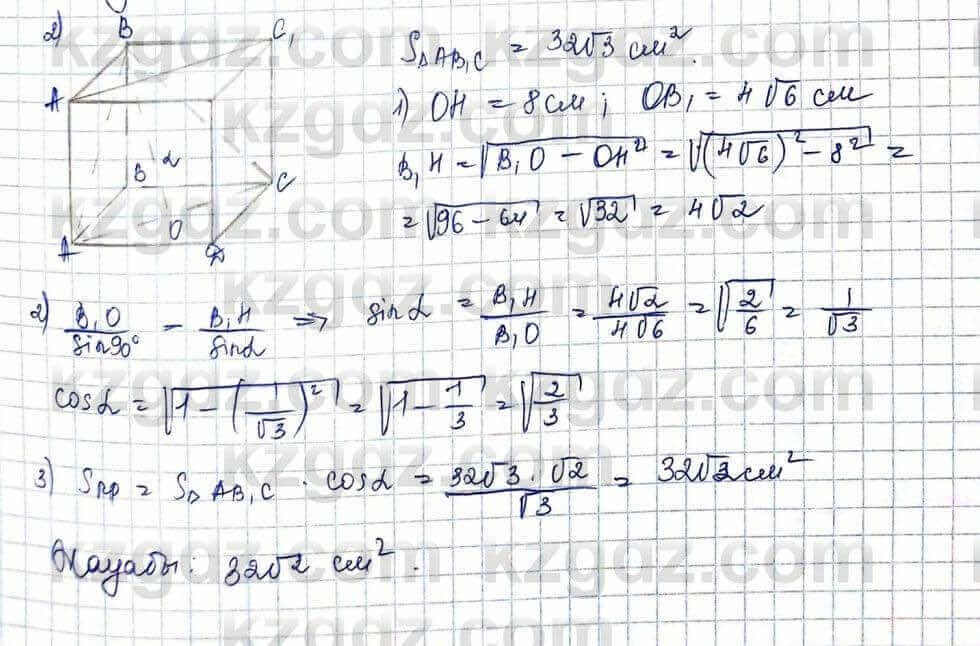 2)
B C₁
A
B α C
A O D
S△AB₁C = 32√3 см².
1) OH = 8 см; OB₁ = 4√6 см
B₁H = √(B₁O − OH²) = √((4√6)² − 8²) =
= √(96 − 64) = √32 = 4√2
2) B₁O/sin90° − B₁H/sinα ⇒ sinα = B₁H/B₁O = 4√2/4√6 = √(2/6) = 1/√3
cosα = √(1 − (1/√3)²) = √(1 − 1/3) = √(2/3)
3) Sпр = S△AB₁C · cosα = 32√3 · √2/√3 = 32√2 см²
Жауабы: 32√2 см².
kzgdz.com